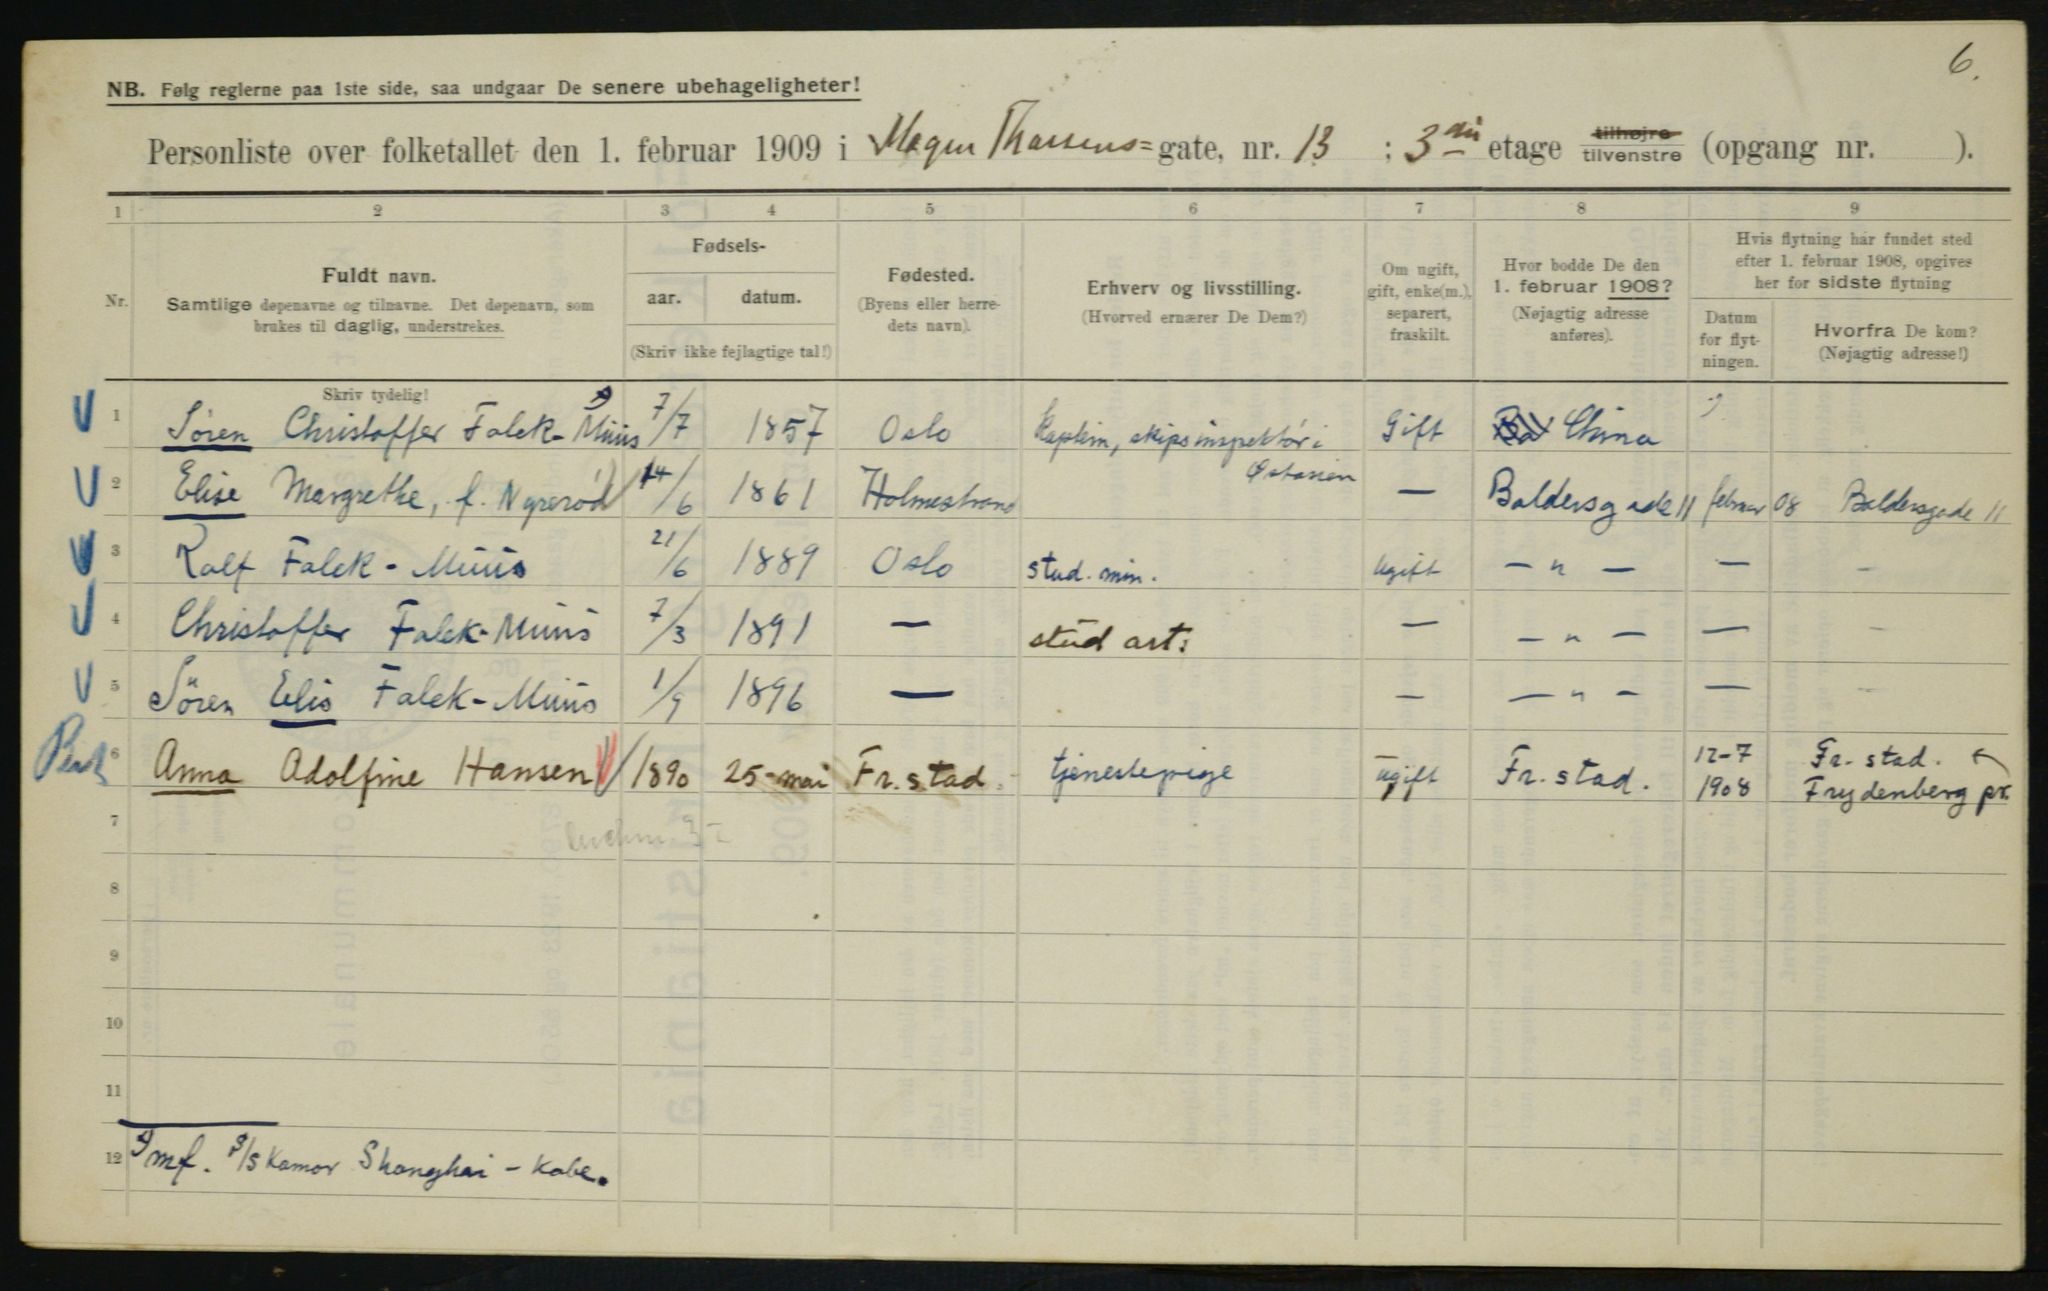 6.
NB. Følg reglerne paa 1ste side, saa undgaar De senere ubehageligheter!
Personliste over folketallet den 1. februar 1909 i Magnus Thranes= gate, nr. 13 ; 3die etage tilhøjre tilvenstre (opgang nr. ).
1 2 3 4 5 6 7 8 9
Nr.
Fuldt navn.
Samtlige døpenavne og tilnavne. Det døpenavn, som
brukes til daglig, understrekes.
Skriv tydelig!
Fødsels-
aar. datum.
(Skriv ikke fejlagtige tal!)
Fødested.
(Byens eller herre-
dets navn).
Erhverv og livsstilling.
(Hvorved ernærer De Dem?)
Om ugift,
gift, enke(m.),
separert,
fraskilt.
Hvor bodde De den
1. februar 1908?
(Nøjagtig adresse
anføres).
Hvis flytning har fundet sted
efter 1. februar 1908, opgives
her for sidste flytning
Datum
for flyt-
ningen.
Hvorfra De kom?
(Nøjagtig adresse!)
1 Sören Christoffer Falck-Muus 7/7 1857 Oslo Kaptein, skipsinspektör i Østasien Gift China
2 Elise Margrethe, f. Nyrerød 14/6 1861 Holmestrand — Baldersgade 11 februar 08 Baldersgade 11
3 Rolf Falck-Muus 21/6 1889 Oslo stud. min. Ugift — " — — –
4 Christoffer Falck-Muus 7/3 1891 — stud art: — — " — — –
5 Sören Elis Falck-Muus 1/9 1896 — — — " — — –
6 Anna Adolfine Hansen 1890 25-mai Fr.stad. tjenestepige ugift Fr.stad. 12-7 1908 Fr-stad. Frydenberg pr.
7
8
9
10
11
12 mf. S/S Kamor Shanghai – Kobe.